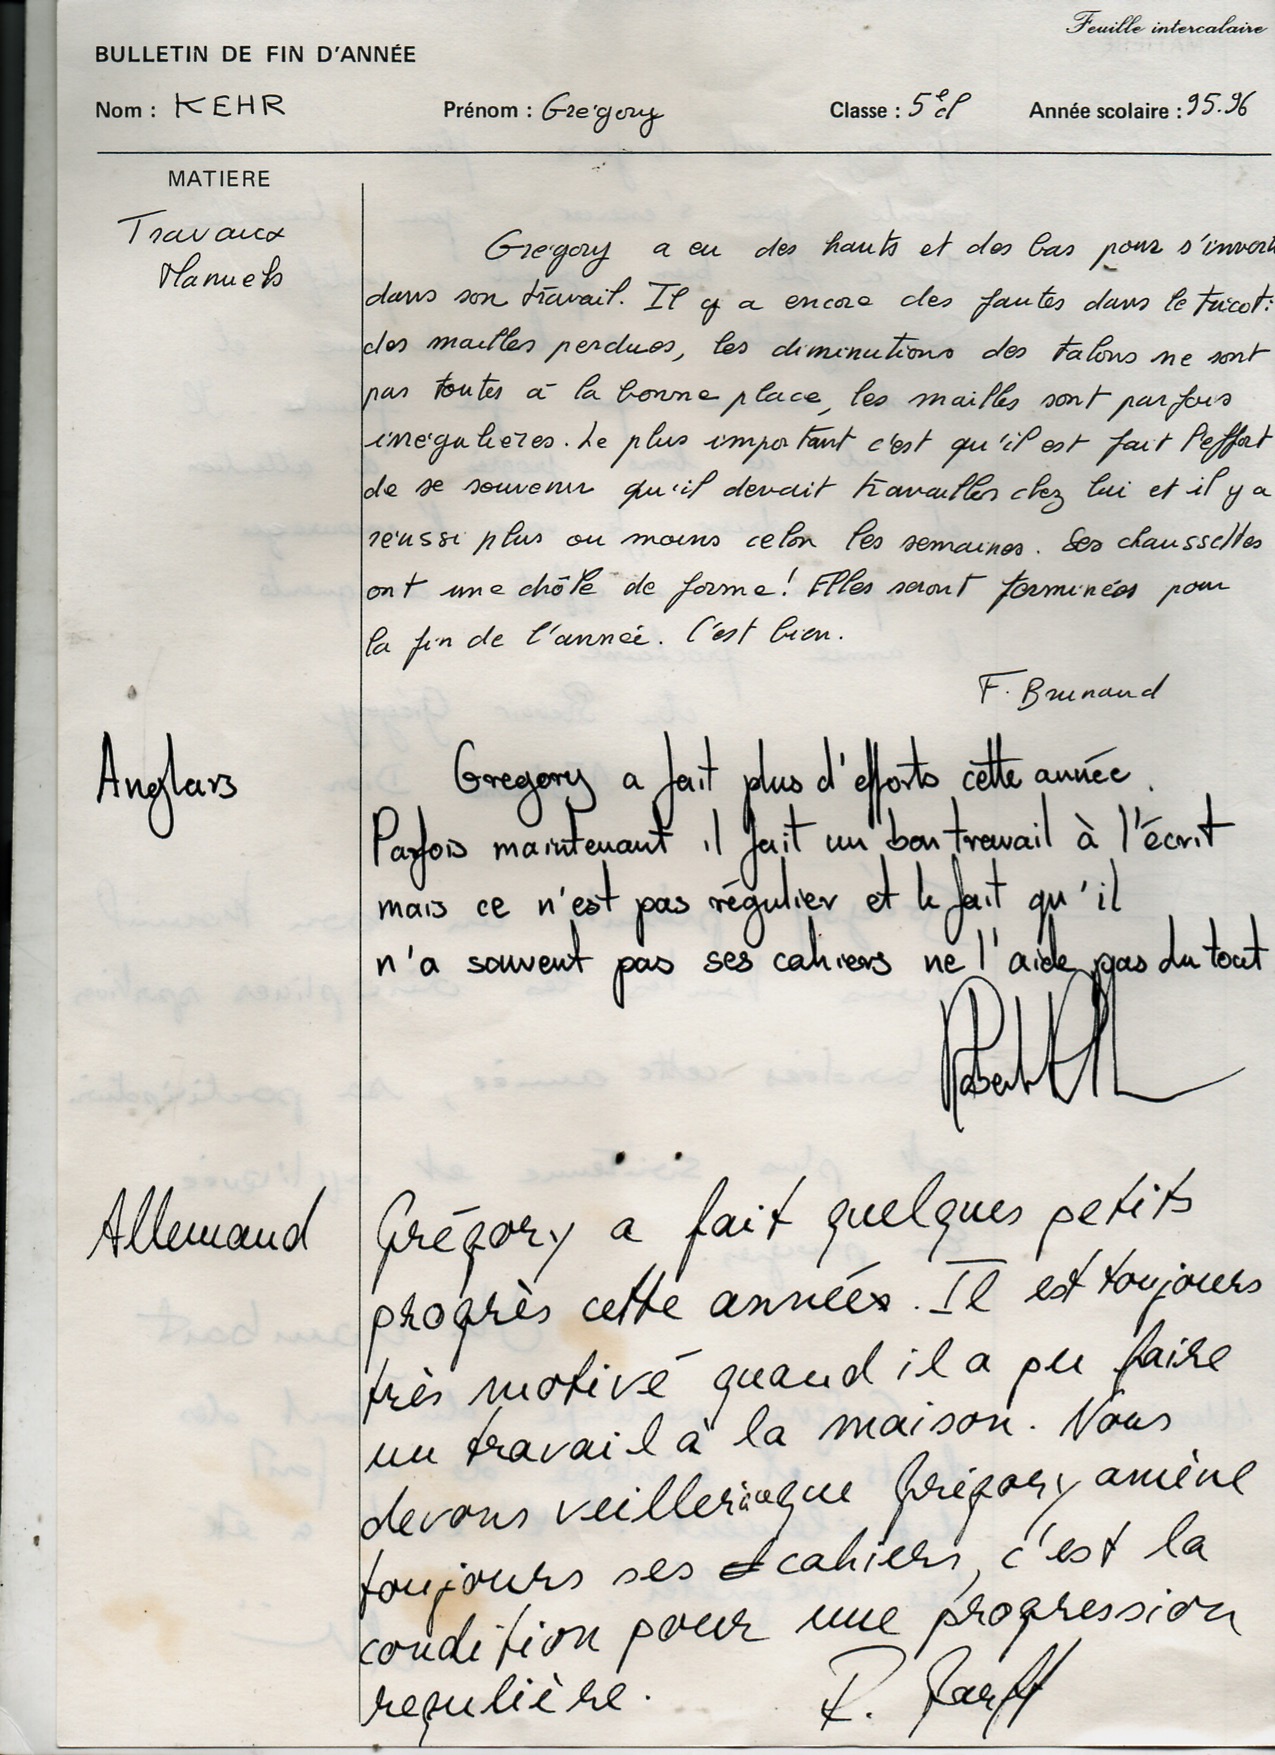 Feuille intercalaire
BULLETIN DE FIN D'ANNÉE
Nom : KEHR Prénom : Grégory Classe : 5e cl Année scolaire : 95.96
MATIERE
Travaux
Manuels
Grégory a eu des hauts et des bas pour s'investir
dans son travail. Il y a encore des fautes dans le tricot :
des mailles perdues, les diminutions des talons ne sont
pas toutes à la bonne place, les mailles sont parfois
irrégulières. Le plus important c'est qu'il est fait l'effort
de se souvenir qu'il devait travailler chez lui et il y a
réussi plus ou moins celon les semaines. Ses chaussettes
ont une drôle de forme ! Elles seront terminées pour
la fin de l'année. C'est bien.
F. Brunaud
Anglais
Gregory a fait plus d'efforts cette année.
Parfois maintenant il fait un bon travail à l'écrit
mais ce n'est pas régulier et le fait qu'il
n'a souvent pas ses cahiers ne l'aide pas du tout
Robert
Allemand
Grégory a fait quelques petits
progrès cette année. Il est toujours
très motivé quand il a pu faire
un travail à la maison. Nous
devons veiller à ce que Grégory amène
toujours ses cahiers, c'est la
condition pour une progression
regulière.
R.